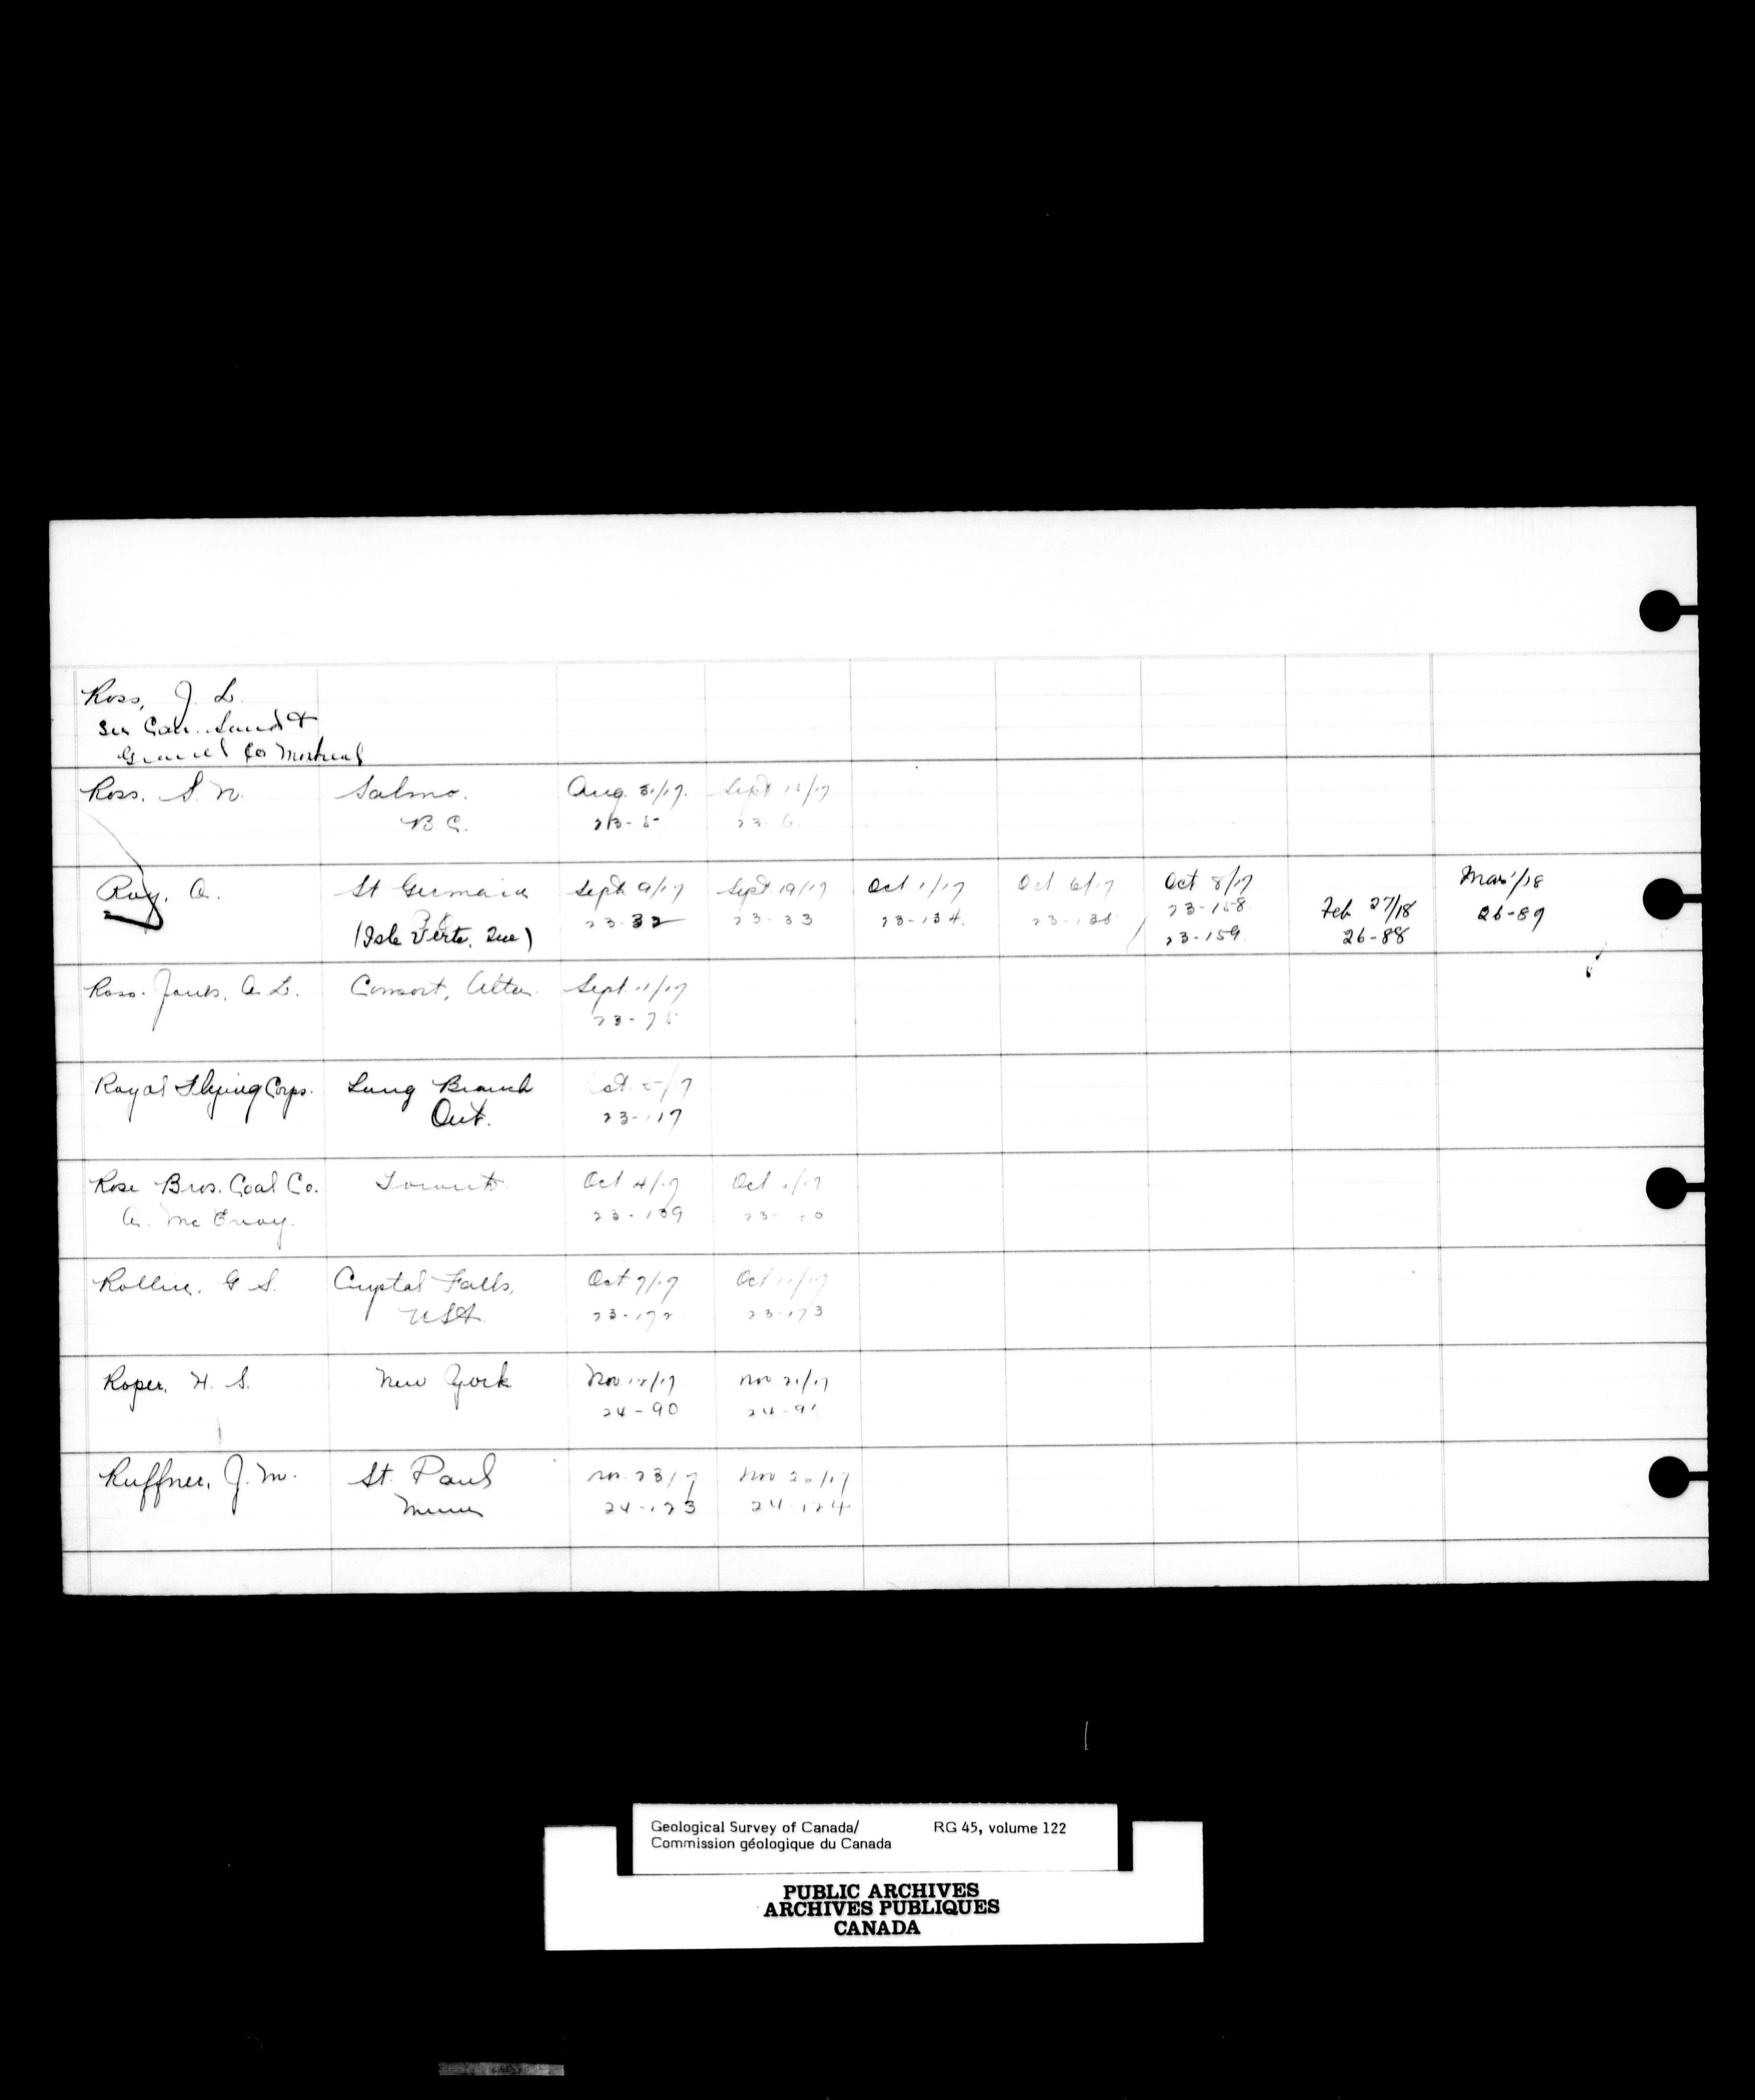 Ross, J. L.
See Can. Sand &
Gravel Co Montreal
Ross. S. N. Salmo. Aug. 31/17. Sept 15/17
B.C. 23-5 23-6
Roy, A. St Germain Sept 9/17 Sept 19/17 Oct 1/17 Oct 6/17 Oct 8/17 Feb 27/18 Mar 1/18
P.Q. 23-32 23-33 23-134 23-135 23-158 26-88 26-89
(Isle Verte, Que) 23-159
Ross-Jones, A. L. Consort, Alta. Sept. 11/17
23-75
Royal Flying Corps. Long Branch Oct. 5/17
Ont. 23-117
Rose Bros. Coal Co. Toronto Oct 4/17 Oct /17
A. Mc Evoy. 23-139 23-
Rollin, G S. Crystal Falls, Oct 7/17 Oct 11/17
USA. 23-172 23-173
Roper, H. S. New York Nov 18/17 Nov 21/17
24-90 24-91
Ruffner, J. M. St. Paul Nov. 23/17 Nov 26/17
Minn 24-123 24-124
Geological Survey of Canada/ RG 45, volume 122
Commission géologique du Canada
PUBLIC ARCHIVES
ARCHIVES PUBLIQUES
CANADA